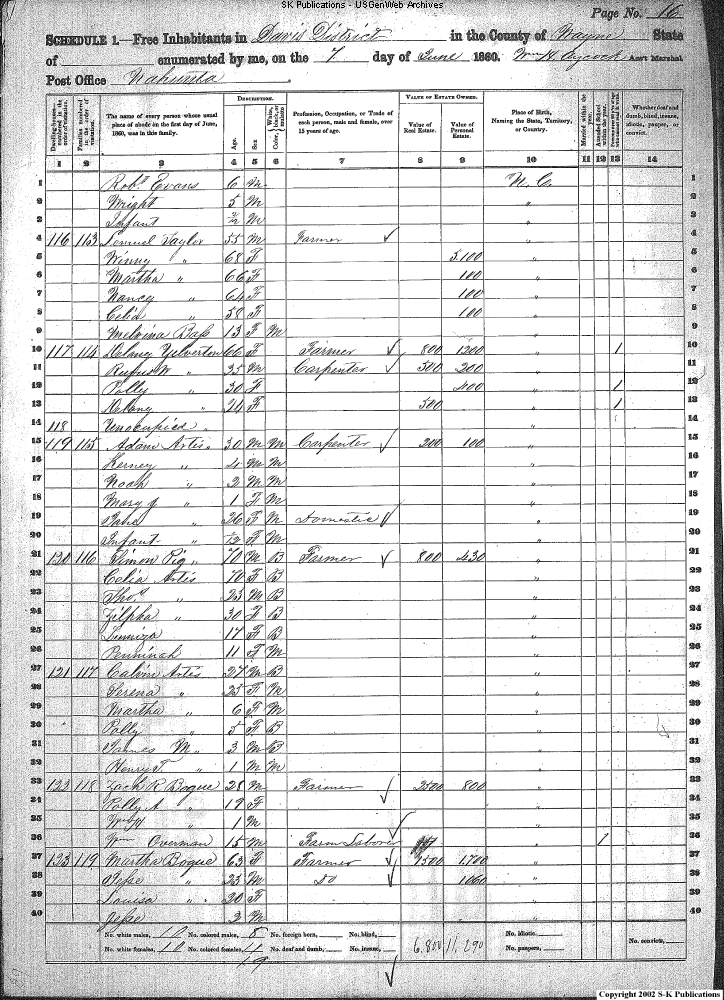 SK Publications - USGenWeb Archives
Page No. 16
SCHEDULE 1.—Free Inhabitants in Davis District in the County of Wayne State
of enumerated by me, on the 7 day of June 1860. Wm H. Aycock Ass't Marshal
Post Office Nahunta
Dwelling-houses—numbered in the order of visitation.
Families numbered in the order of visitation.
The name of every person whose usual place of abode on the first day of June, 1860, was in this family.
DESCRIPTION.
Age.
Sex.
Color, White, black, or mulatto.
Profession, Occupation, or Trade of each person, male and female, over 15 years of age.
VALUE OF ESTATE OWNED.
Value of Real Estate.
Value of Personal Estate.
Place of Birth, Naming the State, Territory, or Country.
Married within the year.
Attended School within the year.
Whether deaf and dumb, blind, insane, idiotic, pauper, or convict.
1 2 3 4 5 6 7 8 9 10 11 12 13 14
1 Robt Evans 6 M N.C. 1
2 Wright 5 M " 2
3 Infant M " 3
4 116 113 Lemuel Taylor 55 M Farmer " 4
5 Winny " 68 F 5.100 " 5
6 Martha " 66 F 100 " 6
7 Nancy " 64 F 100 " 7
8 Celia " 58 F 100 " 8
9 Melvina Bass 13 F M " 9
10 117 114 Delaney Yelverton 66 F Farmer 800 1200 " 1 10
11 Rufus W " 25 M Carpenter 500 200 " 11
12 Polly " 30 F 400 " 1 12
13 Delany " 24 F 500 " 1 13
14 118 Unoccupied " 14
15 119 115 Adam Artis 30 M M Carpenter 200 100 " 15
16 Kerney " 4 M M " 16
17 Noah " 2 M M " 17
18 Mary J " 1 F M " 18
19 Jane " 26 F M Domestic " 19
20 Infant " F M " 20
21 120 116 Simon Pig 70 M B Farmer 800 430 " 21
22 Celia Artis 70 F B " 22
23 Thos " 23 M B " 23
24 Zilpha " 30 F B " 24
25 17 F B " 25
26 Penninah 11 F M " 26
27 121 117 Calvin Artis 27 M B " 27
28 Serena " 25 F M " 28
29 Martha " 6 F M " 29
30 Polly " 5 F B " 30
31 James M " 3 M B " 31
32 Henry T " 1 M M " 32
33 122 118 Zach R Bogue 28 M Farmer 2500 800 " 33
34 Polly A " 19 F " 34
35 " 1 M " 35
36 Wm Overman 15 M Farm Laborer " 1 36
37 123 119 Martha Bogue 63 F Farmer 1500 1.700 " 37
38 Jesse " 25 M do 1060 " 38
39 Louisa " 20 F " 39
40 Jesse 2 M " 40
No. white males, 10 No. colored males, 8 No. foreign born, No. blind,
No. white females, 10 No. colored females, 11 No. deaf and dumb, No. insane,
6.800 11.290
No. idiotic,
No. paupers,
No. convicts,
19
Copyright 2002 S-K Publications